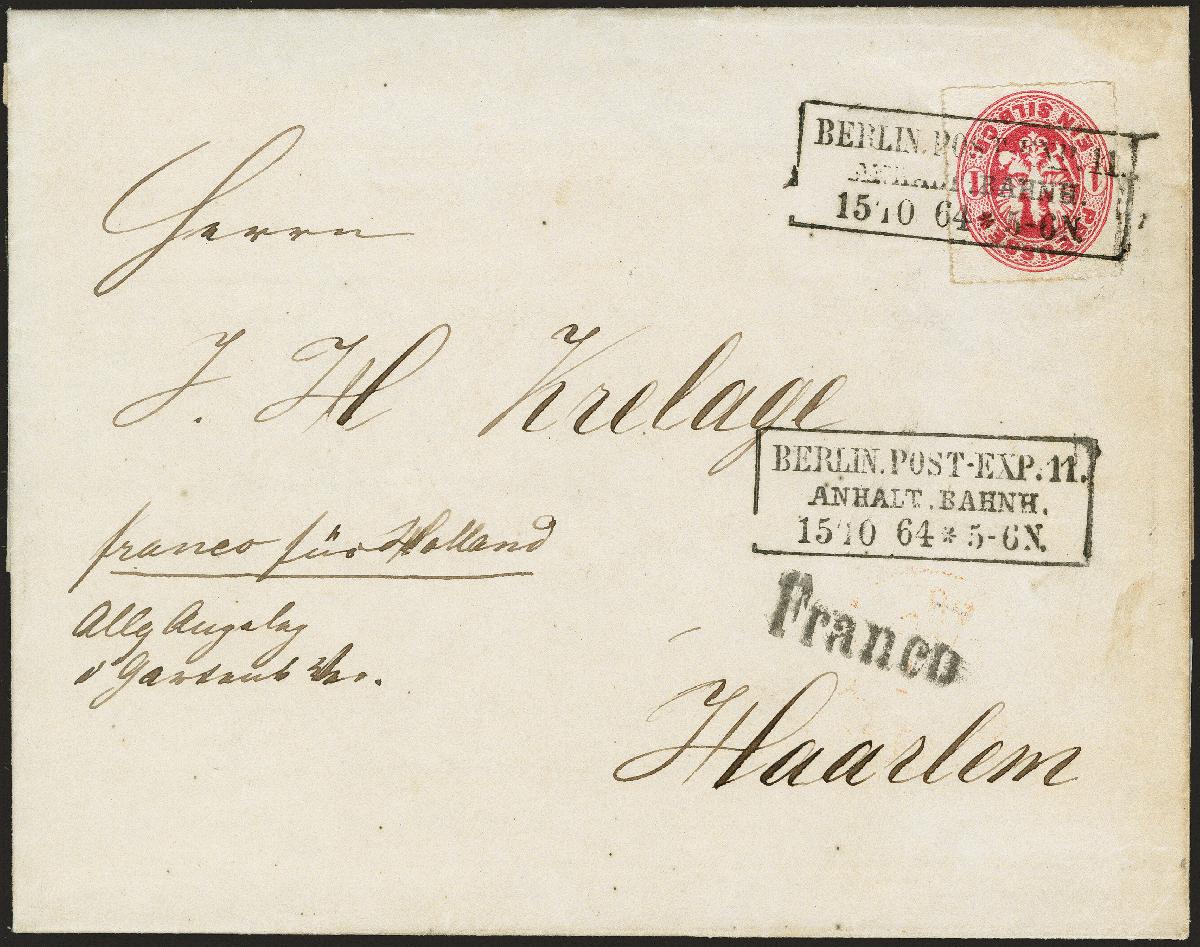 BERLIN. POST-EXP. 11.
ANHALT. BAHNH.
15 10 64 * 5-6N.
1 EIN SILBGR. 1
PREUSSEN
Herrn
J. H Krelage
BERLIN. POST-EXP. 11.
ANHALT. BAHNH.
15 10 64 * 5-6N.
franco für Holland
Franco
Haarlem